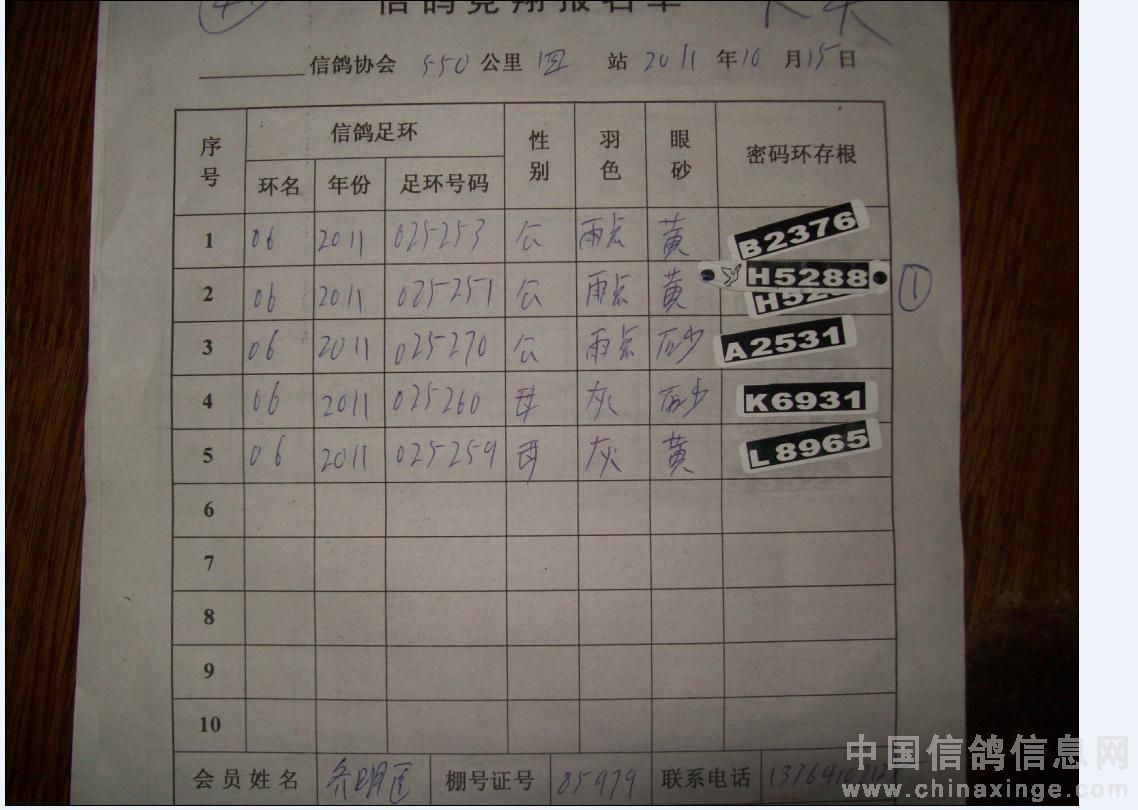 信鸽竞翔报名单
信鸽协会 550 公里 四 站 2011 年 10 月 15 日
序号 信鸽足环 性别 羽色 眼砂 密码环存根
环名 年份 足环号码
1 06 2011 025253 公 雨点 黄 B2376
2 06 2011 025251 公 雨点 黄 H5288 ①
H52
3 06 2011 025270 公 雨点 砂 A2531
4 06 2011 025260 母 灰 砂 K6931
5 06 2011 025259 母 灰 黄 L8965
6
7
8
9
10
会员姓名 棚号证号 85979 联系电话
中国信鸽信息网
www.chinaxinge.com